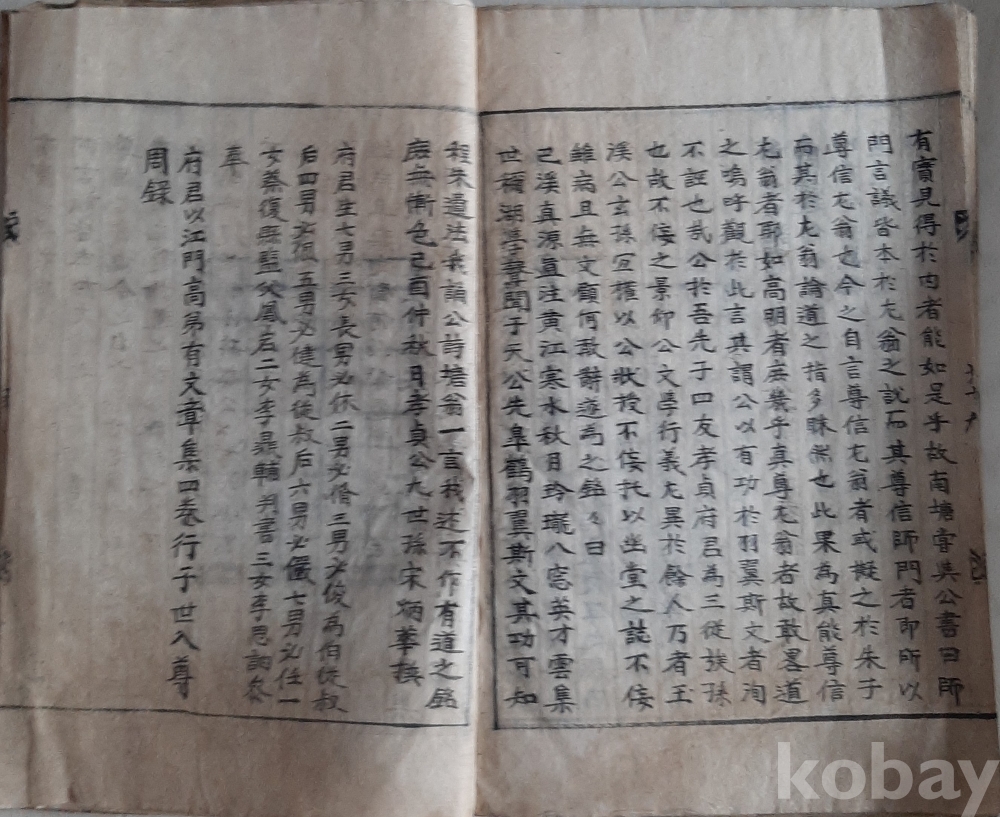 有實見得於內者能如是乎故南塘甞與公書曰師
門言議皆本於尤翁之說而其尊信師門者即所以
尊信尤翁也今之自言尊信尤翁者或擬之於朱子
而其於尤翁論道之指多昧然也此果為真能尊信
尤翁者耶如高明者庶幾乎真尊尤翁者故敢畧道
之嗚呼觀於此言其謂公以有功於羽翼斯文者洵
不誣也哉公於吾先子曰友孝貞府君為三從族孫
也故不佞之景仰公文學行義尤異於餘人乃者玉
溪公玄孫冝權以公狀授不佞托以坐堂之誌不佞
雖病且無文顧何敢辭遂為之銘々曰
己溪真源直注黃江寒水秋月玲瓏八窓英才雲集
世稱湖學聲聞于天公先皐鶴羽翼斯文其功可知
程朱遺法我誦公詩塘翁一言我述不作有道之銘
庶無慚色己酉仲秋日孝貞公九世孫宋炳華撰
府君生七男三女長男必休二男必脩三男必俊為伯從叔
后四男必 五男必健為從叔后六男必儼七男必任一
女蔡復 監父鳳岩二女李鼎輔判書三女李思訥叅
奉
府君以江門高弟有文章集四卷行于世入尊
周錄
kobay